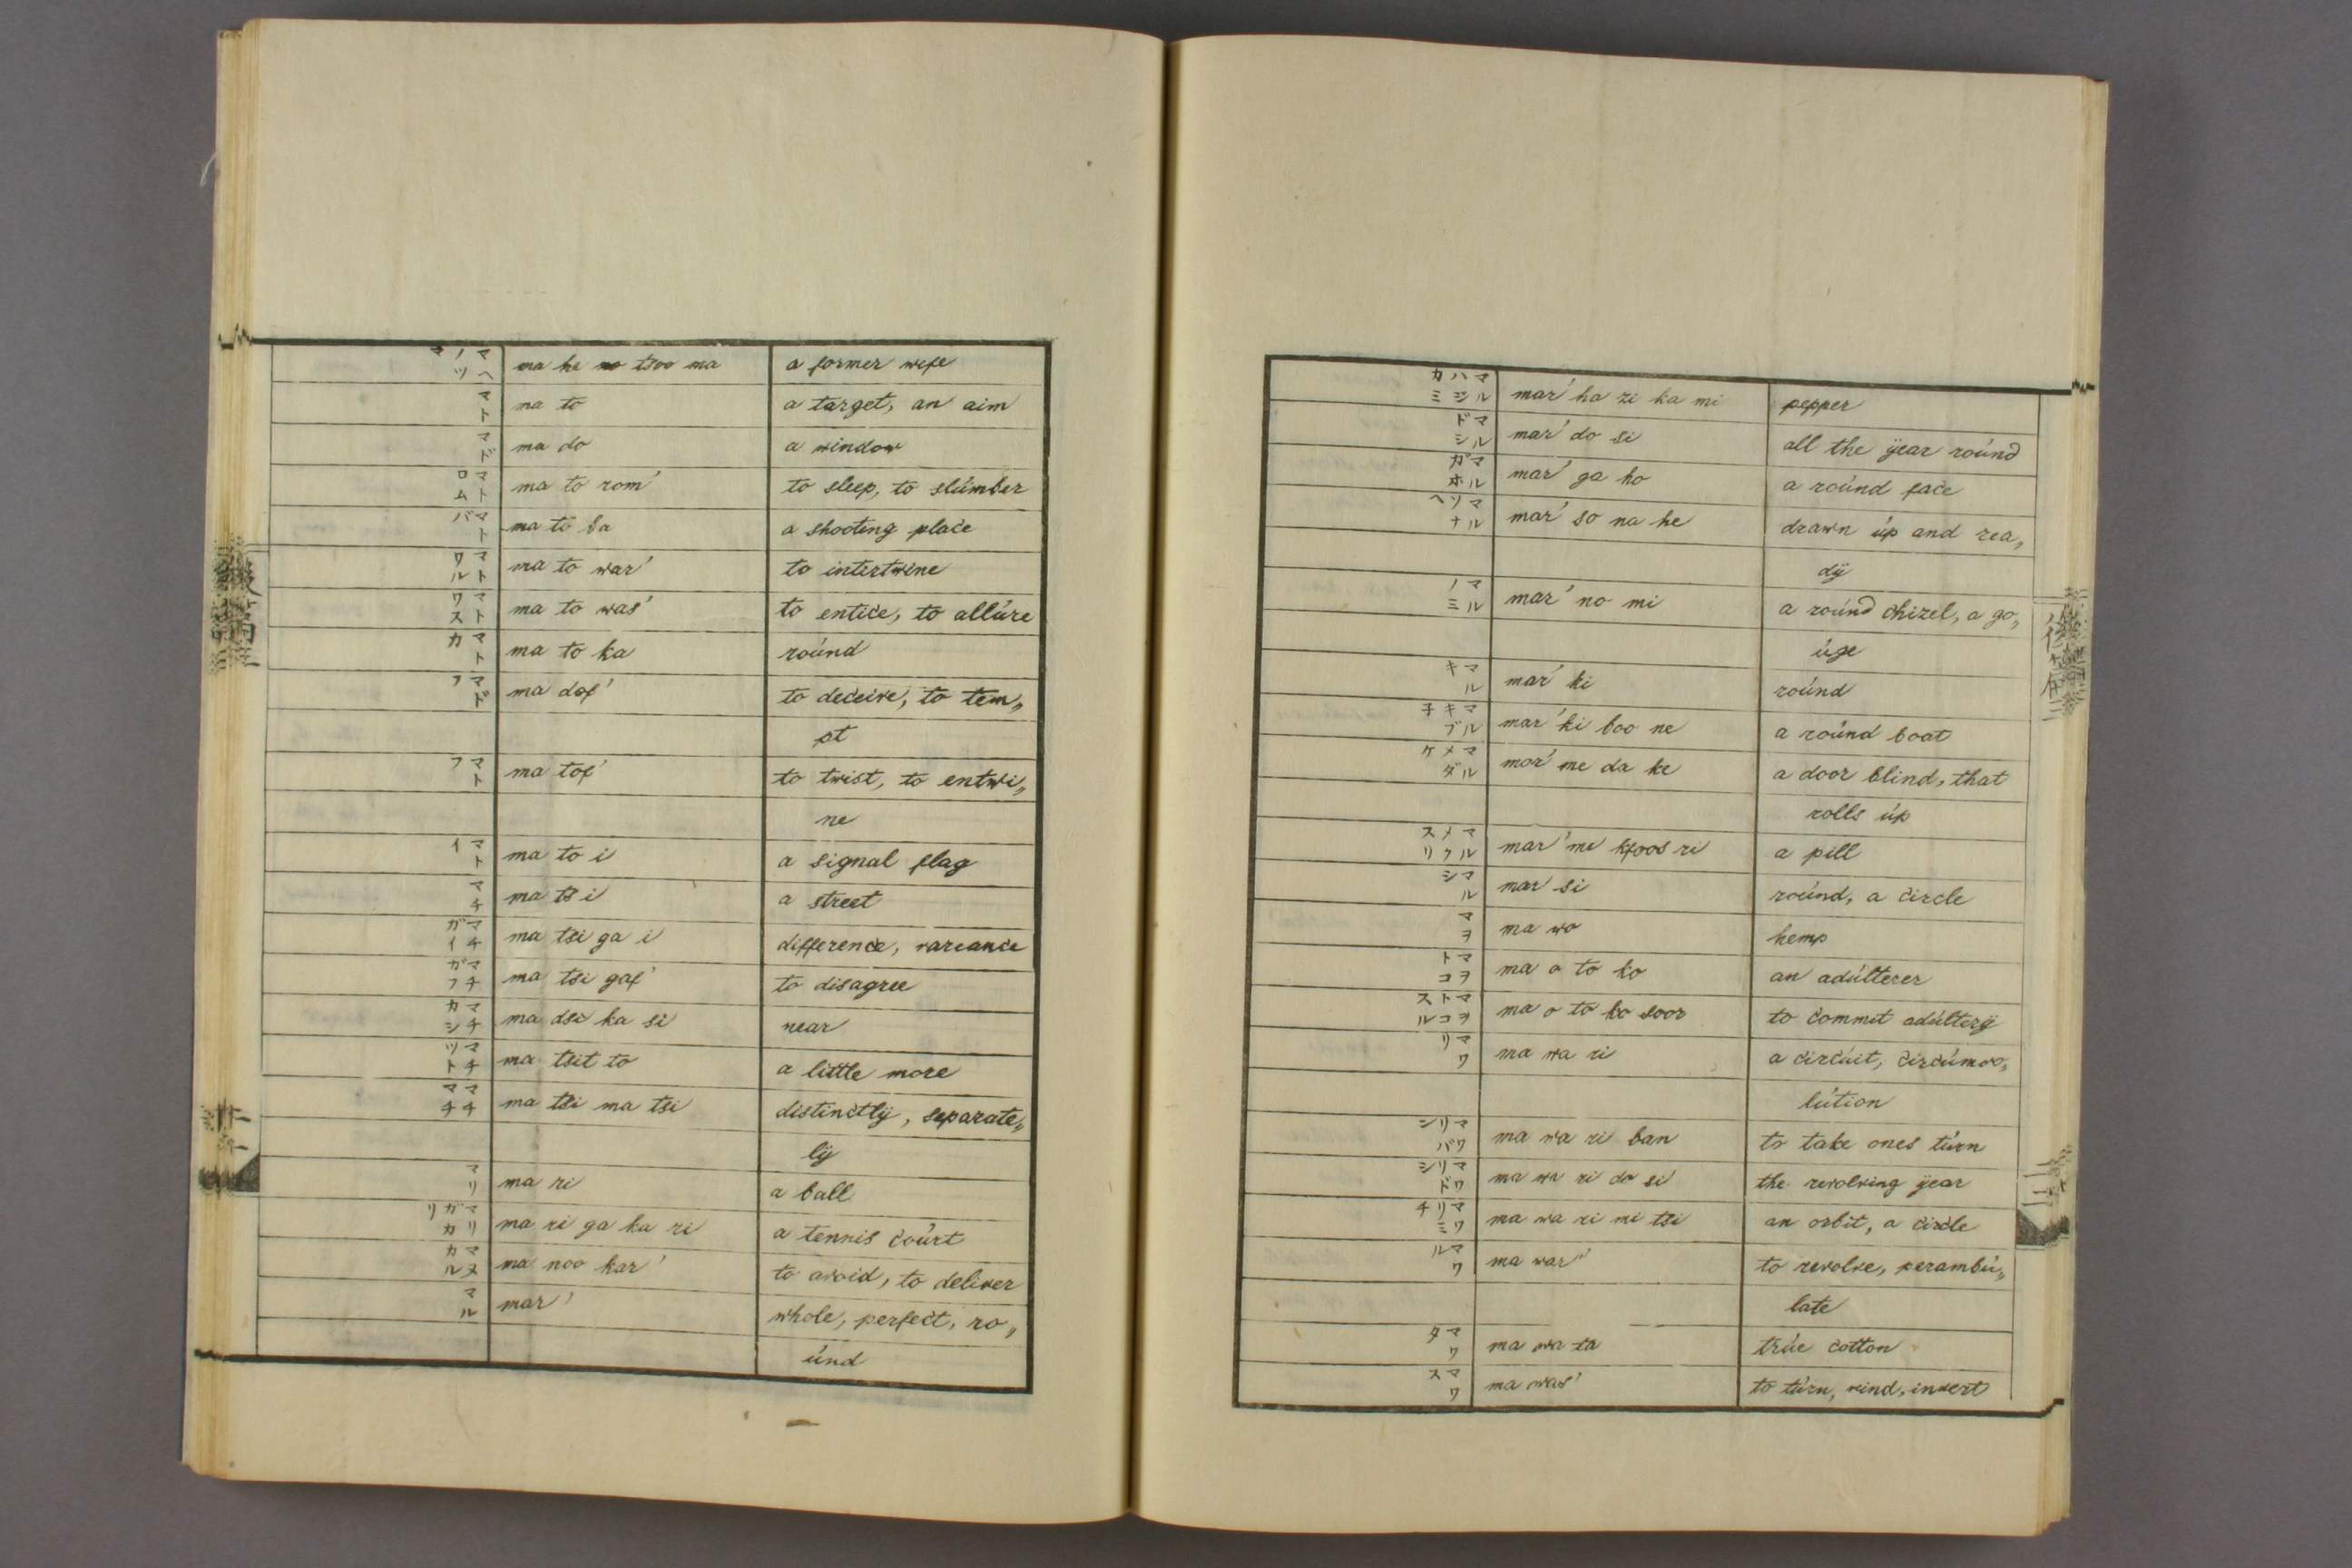 マヘノツマ ma he no tsoo ma a former wife
マト ma to a target, an aim
マド ma do a window
マトロム ma to rom' to sleep, to slúmber
マトバ ma to ba a shooting place
マトワル ma to war' to intertwine
マトワス ma to was' to entice, to allúre
マトカ ma to ka roúnd
マドフ ma dof' to deceive, to tem„
pt
マトフ ma tof' to twist, to entwi„
ne
マトイ ma to i a signal flag
マチ ma ts i a street
マチガイ ma tsi ga i difference, vareance
マチガフ ma tsi gaf' to disagree
マチカシ ma dsi ka si near
マチツト ma tsit to a little more
マチマチ ma tsi ma tsi distinctlÿ, separate„
lÿ
マリ ma ri a ball
マリガカリ ma ri ga ka ri a tennis coúrt
マヌカル ma noo kar' to avoid, to deliver
マル mar' whole, perfect, ro„
únd
マルハジカミ mar' ha zi ka mi pepper
マルドシ mar' do si all the ÿear roúnd
マルガホ mar' ga ho a roúnd face
マルソナヘ mar' so na he drawn úp and rea„
dÿ
マルノミ mar' no mi a roúnd chizel, a go„
úge
マルキ mar' ki roúnd
マルキブネ mar' ki boo ne a roúnd boat
マルメダケ mor' me da ke a door blind, that
rolls úp
マルメクスリ mar' me kfoos ri a pill
マルシ mar si roúnd, a circle
マヲ ma wo hemp
マヲトコ ma o to ko an adúlterer
マヲトコスル ma o to ko soor to commit adúlterÿ
マワリ ma wa ri a circúit, circúmvo„
lútion
マワリバン ma wa ri ban to take ones túrn
マワリドシ ma wa ri do si the revolving ÿear
マワリミチ ma wa ri mi tsi an orbit, a circle
マワル ma war' to revolve, perambú„
late
マワタ ma wa ta trúe cotton
マワス ma was' to túrn, wind, invert